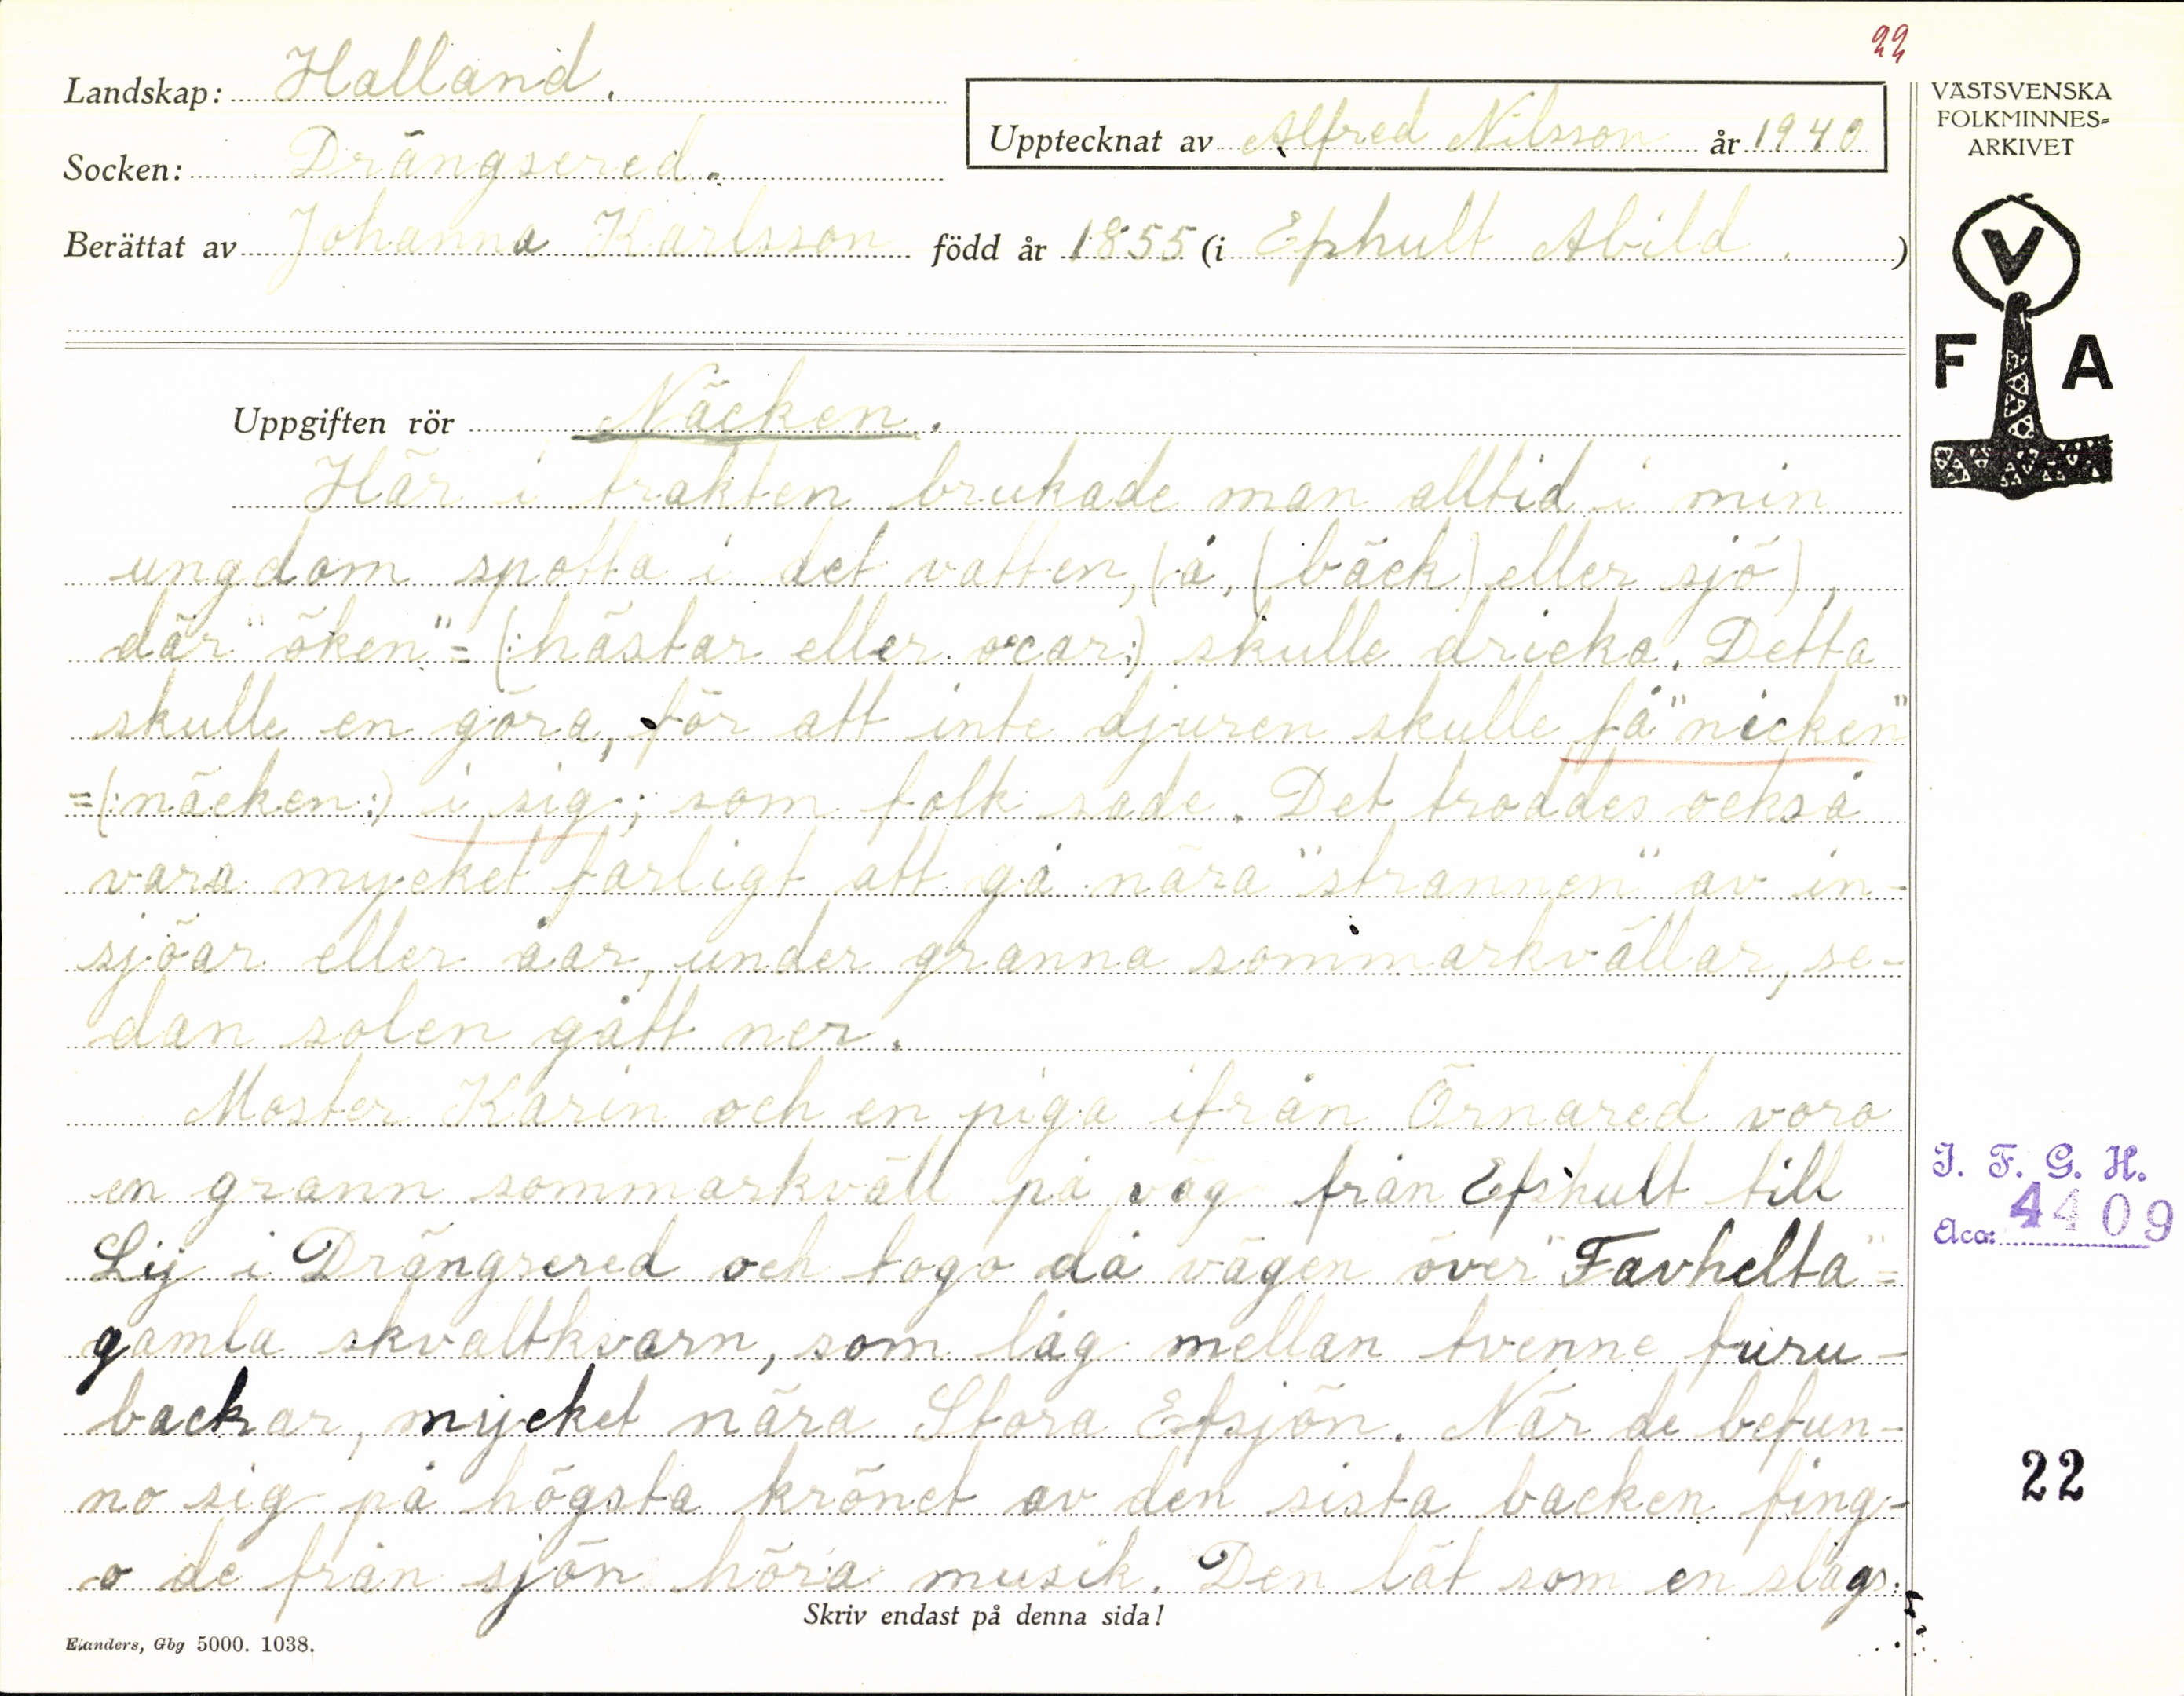 22
Landskap: Halland.
Upptecknat av Alfred Nilsson år 1940
Socken: Drängsered.
Berättat av Johanna Karlsson född år 1855 (i Ephult Abild.)
VÄSTSVENSKA
FOLKMINNES-
ARKIVET
V
F A
Uppgiften rör Näcken.
Här i trakten brukade man alltid i min
ungdom spotta i det vatten, (å, (bäck) eller sjö),
där "öken" = (:hästar eller oxar:) skulle dricka. Detta
skulle en göra, för att inte djuren skulle få "nicken"
=(:näcken:) i sig; som folk sade. Det troddes också
vara mycket farligt att gå nära "strannen" av in-
sjöar eller åar, under granna sommarkvällar, se-
dan solen gått ner.
Moster Karin och en piga ifrån Örnared voro
en grann sommarkväll på väg från Efshult till
Lij i Drängsered och togo då vägen över "Favhelta"=
gamla skvaltkvarn, som låg mellan tvenne furu-
backar, mycket nära Stora Efsjön. När de befun-
no sig på högsta krönet av den sista backen fing-
o de från sjön höra musik. Den lät som en slags:
I. F. G. H.
Acc: 4409
22
Skriv endast på denna sida!
Elanders, Gbg 5000. 1038.